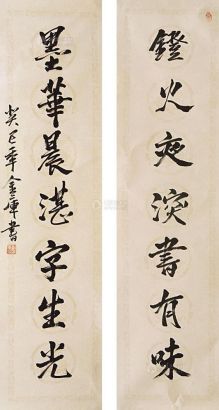 鐙火夜深書有味
墨華晨湛字生光
癸巳季金庫書